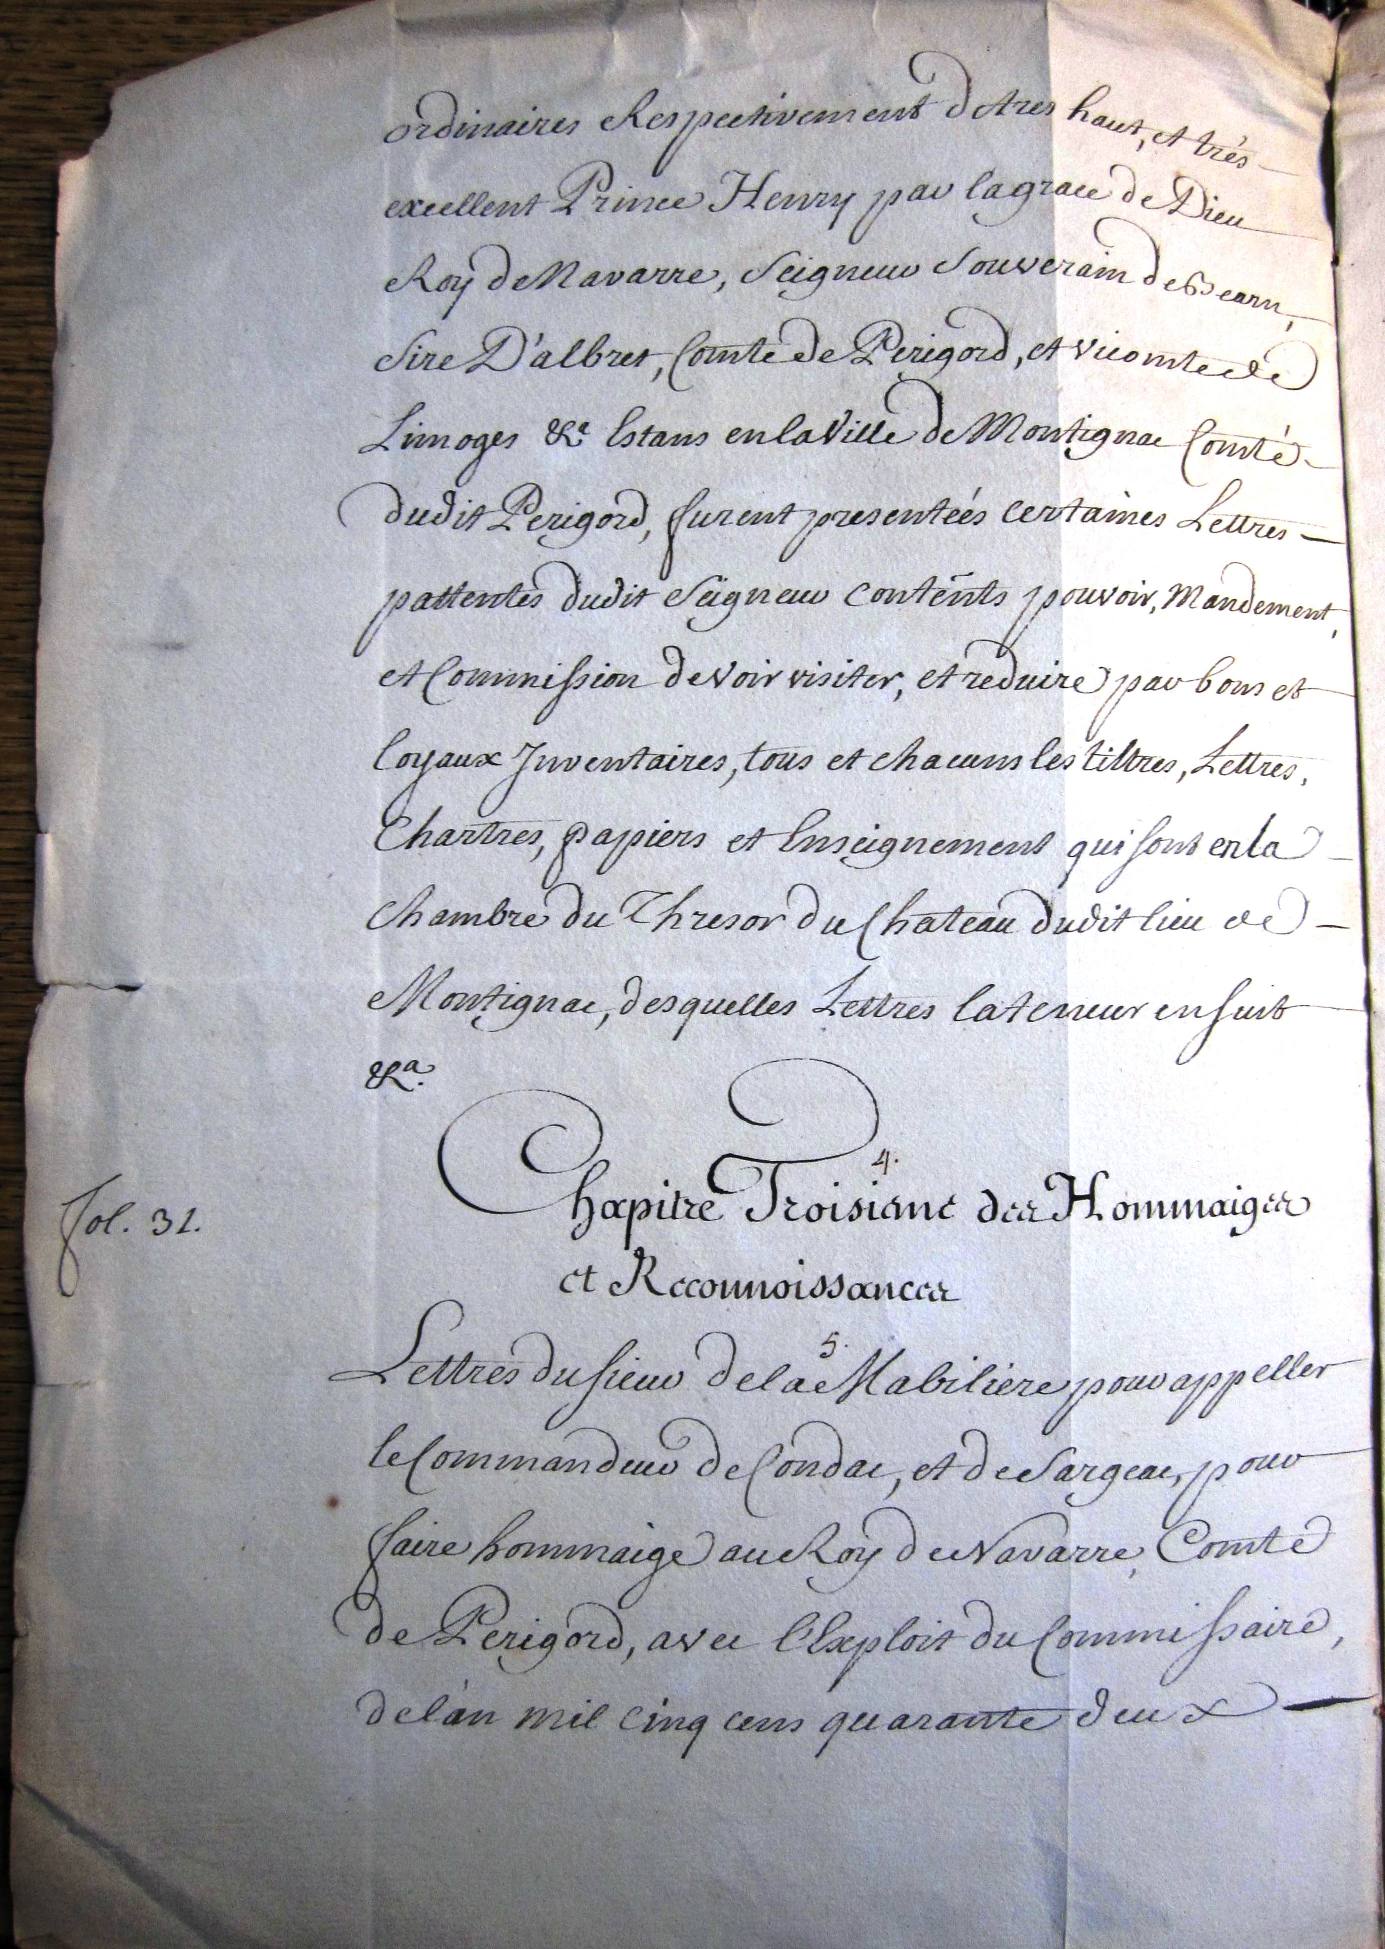 ordinaires Respectivement de tres haut, et très
excellent Prince Henry par la grace de Dieu
Roy de Navarre, Seigneur Souverain de Bearn,
Sire D'albret, Comte de Perigord, et vicomte de
Limoges &a Estans en la Ville de Montignac Comté
dudit Perigord, furent presenteés certaines Lettres
pattentes dudit Seigneur contents pouvoir, Mandement,
et Commission de voir visiter, et reduire par bons et
loyaux Inventaires, tous et chacuns les tiltres, Lettres,
Chartres, papiers et Enseignement qui sont en la
Chambre du Thresor du Chateau dudit lieu de
Montignac, desquelles Lettres la teneur ensuit
&a.
4.
Chapitre Troisieme des Hommaiges
fol. 31.
et Reconnoissances
5.
Lettres du sieur de la Mabiliere pour appeller
le Commandeur de Condac, et de Sargeac, pour
faire hommaige au Roy de Navarre, Comte
de Perigord, avec l'Exploit du Commissaire,
de l'an mil cinq cens quarante deux